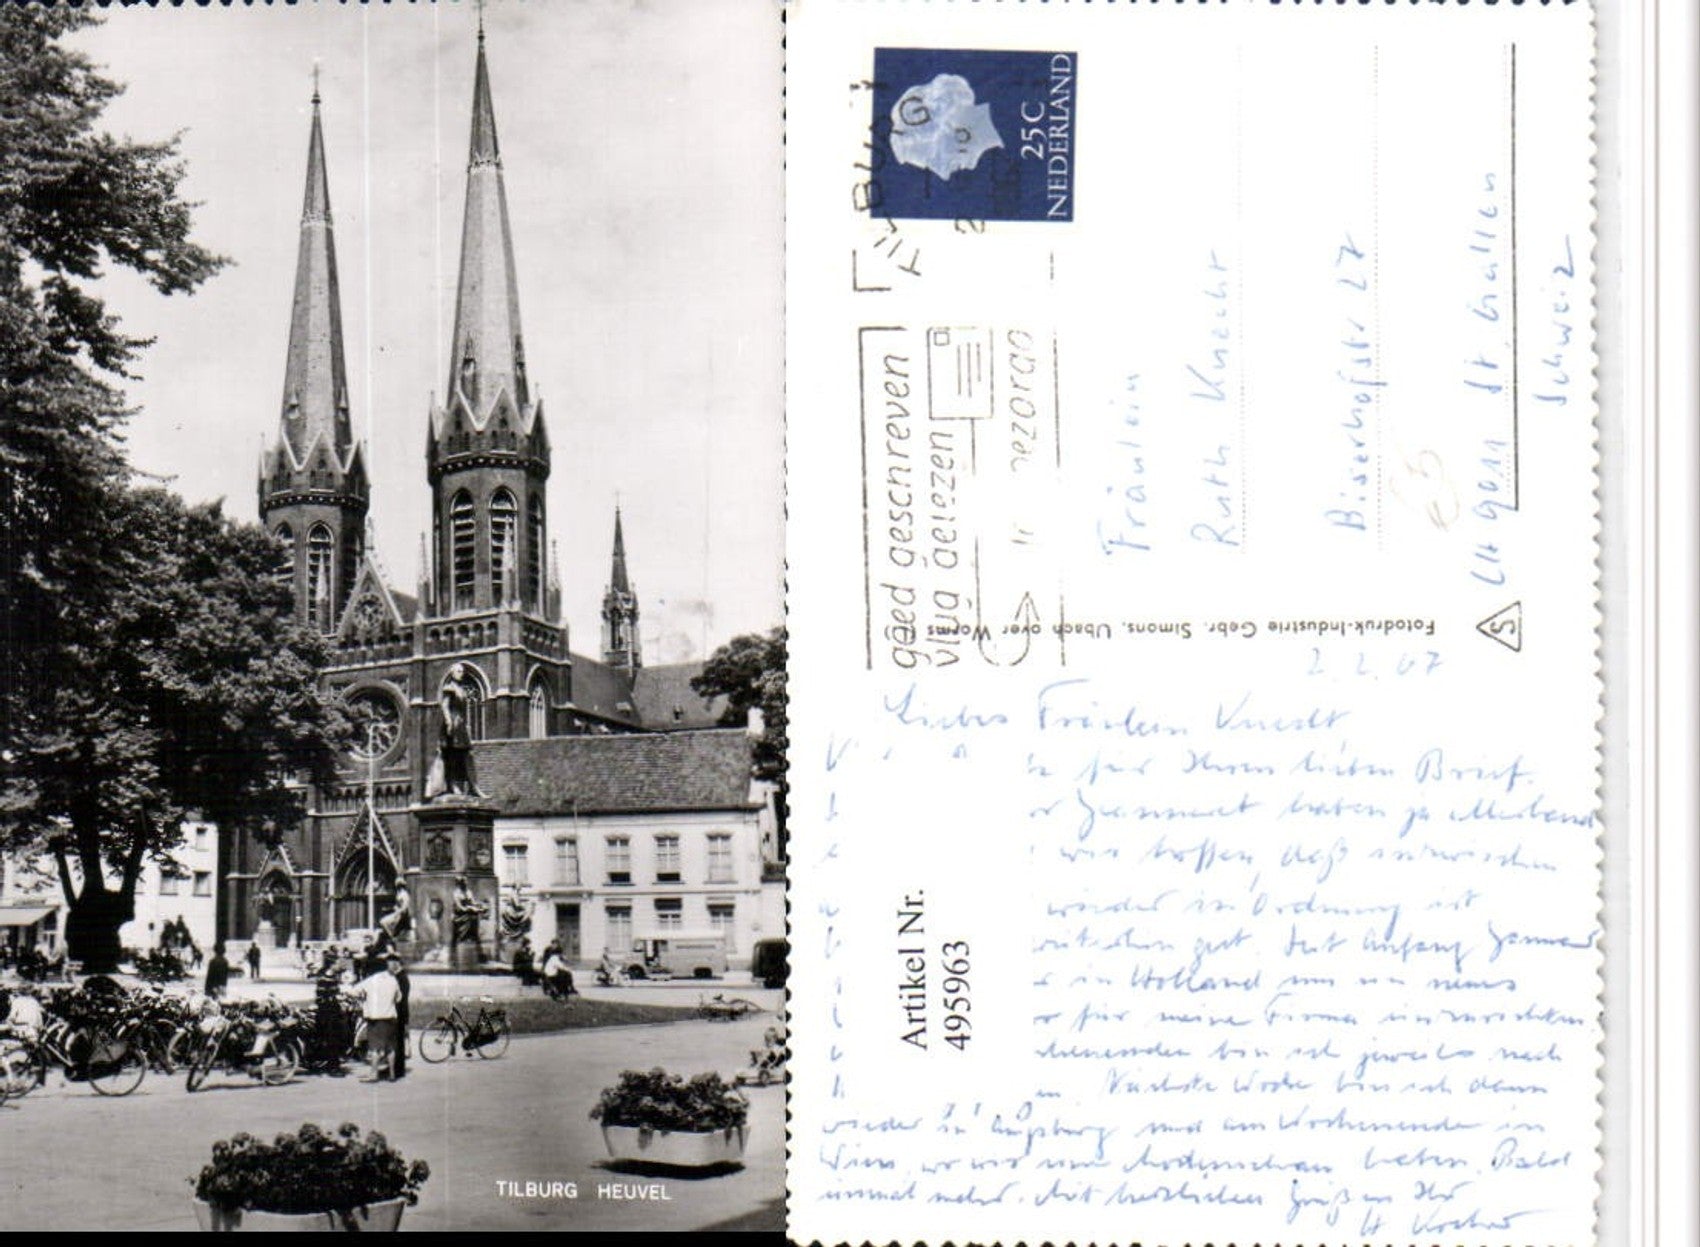 TILBURG HEUVEL
25 C
NEDERLAND
goed geschreven
vlug gelezen
Fräulein
Ruth Knecht
Biserhofstr 27
CH 9011 St. Gallen
Schweiz
Fotodruk-Industrie Gebr. Simons, Ubach over Worms
S
2.2.67
Liebes Fräulein Knecht
für Ihren lieben Brief.
haben ja allerhand
wir hoffen, daß inzwischen
wieder in Ordnung ist
weiterhin gut. Seit Anfang Januar
in Holland um ein neues
für meine Firma einzurichten.
bin ich jeweils nach
Nächste Woche bin ich dann
wieder in Augsburg und am Wochenende in
Wien, wo wir eine Modenschau haben. Bald
einmal mehr. Mit herzlichen Grüßen Ihr
Artikel Nr.
495963